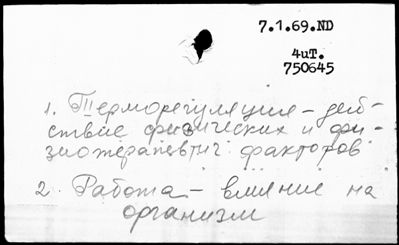 7.1.69.ND
4иT.
750645
1. Терморегуляция – дей-
ствие физических и фи-
зиотерапевтич. факторов
2. Работа – влияние на
организм